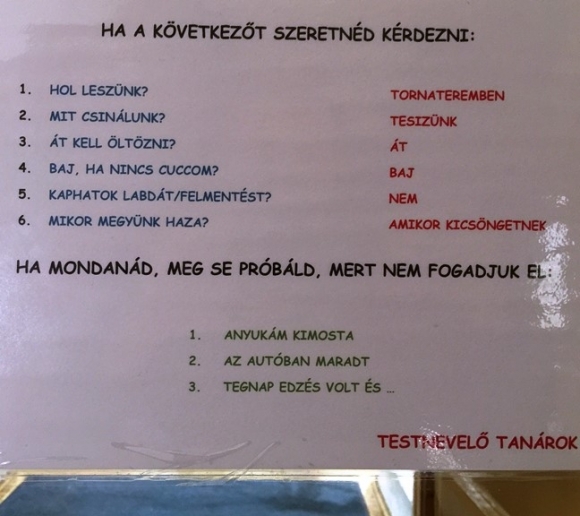 HA A KÖVETKEZŐT SZERETNÉD KÉRDEZNI:
1. HOL LESZÜNK? TORNATEREMBEN
2. MIT CSINÁLUNK? TESIZÜNK
3. ÁT KELL ÖLTÖZNI? ÁT
4. BAJ, HA NINCS CUCCOM? BAJ
5. KAPHATOK LABDÁT/FELMENTÉST? NEM
6. MIKOR MEGYÜNK HAZA? AMIKOR KICSÖNGETNEK
HA MONDANÁD, MEG SE PRÓBÁLD, MERT NEM FOGADJUK EL:
1. ANYUKÁM KIMOSTA
2. AZ AUTÓBAN MARADT
3. TEGNAP EDZÉS VOLT ÉS …
TESTNEVELŐ TANÁROK